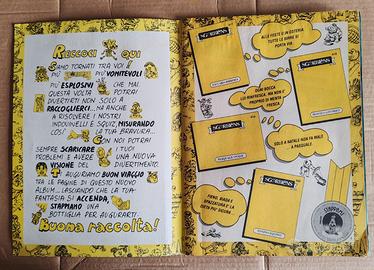 RACCOLI QUI
SIAMO TORNATI TRA VOI
PIÙ VOMITEVOLI
PIÙ ESPLOSIVI CHE MAI
QUESTA VOLTA POTRAI
DIVERTIRTI NON SOLO A
RACCOGLIERCI...MA ANCHE
A RISOLVERE I NOSTRI
INDOVINELLI E SQUIZ, MISURANDO
COSÌ LA TUA BRAVURA...
CON NOI POTRAI
SEMPRE SCARICARE I TUOI
PROBLEMI E AVERE UNA NUOVA
VISIONE DEL DIVERTIMENTO.
TI AUGURIAMO BUON VIAGGIO
TRA LE PAGINE DI QUESTO NUOVO
ALBUM...LASCIANDO CHE LA TUA
FANTASIA SI ACCENDA,
STAPPIAMO UNA
BOTTIGLIA PER AUGURARTI..
Buona raccolta!
SGORBIONS
ALLE FESTE O IN OSTERIA
TUTTE LE BIRRE SI
PORTA VIA
SGORBIONS
OGNI BOCCA
LUI RINFRESCA, MA NON È
PROPRIO DI MENTA
FRESCA
SGORBIONS
SOLO A NATALE NON FA MALE
A PASQUALE
SGORBIONS